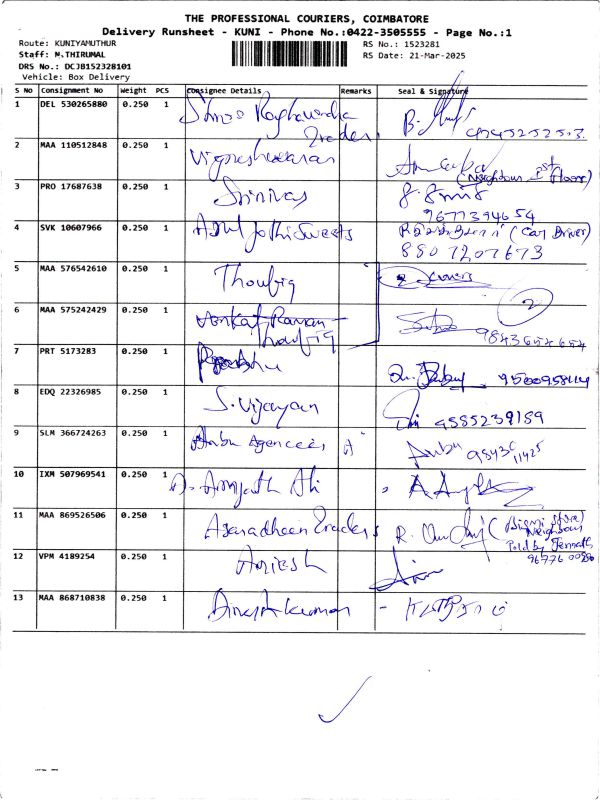 THE PROFESSIONAL COURIERS, COIMBATORE
Delivery Runsheet - KUNI - Phone No.:0422-3505555 - Page No.:1
Route: KUNIYAMUTHUR
RS No.: 1523281
Staff: M.THIRUMAL
RS Date: 21-Mar-2025
DRS No.: DCJB152328101
Vehicle: Box Delivery
S No Consignment No Weight PCS Consignee Details Remarks Seal & Signature
1 DEL 530265880 0.250 1 Raghavendra Traders
2 MAA 110512848 0.250 1 Vigneshwaran
(Neighbour 1st Floor)
3 PRO 17687638 0.250 1 Srinivas
9677394654
4 SVK 10607966 0.250 1 Jothi Sweets (Car Driver)
8807207673
5 MAA 576542610 0.250 1 Thoufiq 2 covers
6 MAA 575242429 0.250 1 Venkat Raman 2
Thoufiq 9843654654
7 PRT 5173283 0.250 1
8 EDQ 22326985 0.250 1 S. Vijayan 9585239189
9 SLM 366724263 0.250 1 Anbu Agencees A Anbu
10 IXM 507969541 0.250 1 Ali
11 MAA 869526506 0.250 1 Traders R. (Bismi Store)
Neighbour
Told by
12 VPM 4189254 0.250 1
13 MAA 868710838 0.250 1 Dineshkumar